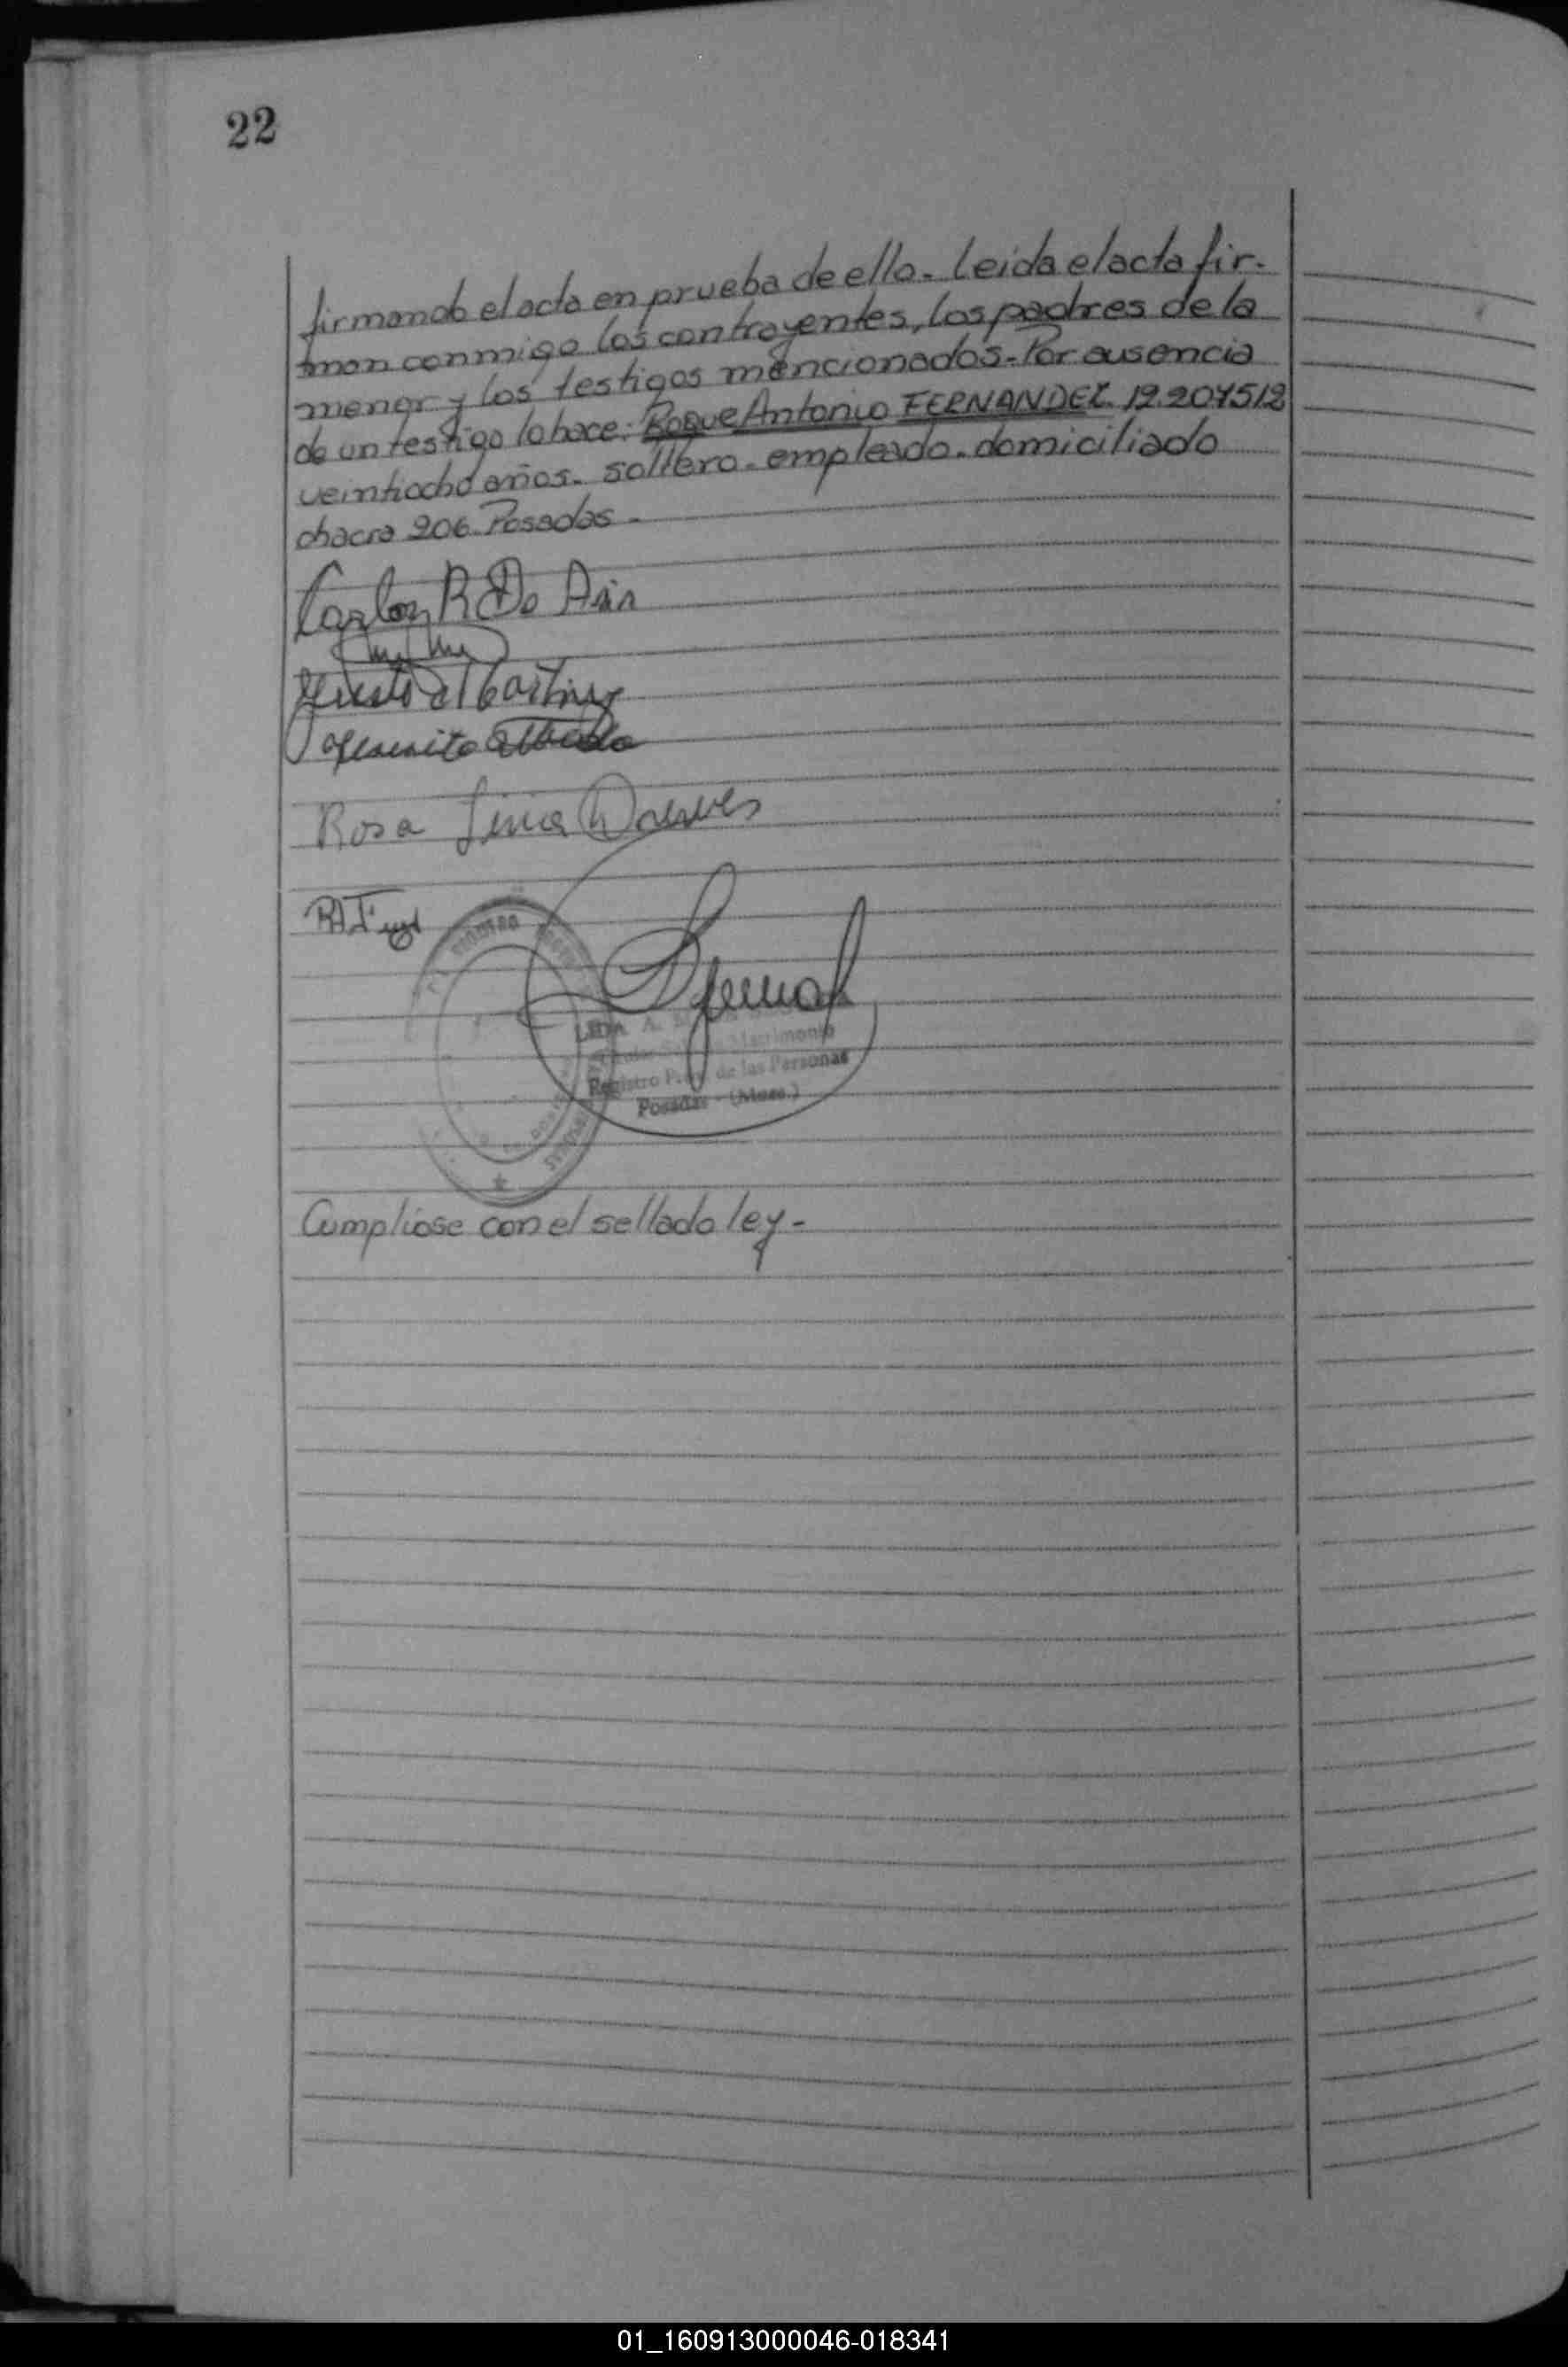 22
firmando el acta en prueba de ello. Leida el acta fir-
man conmigo los contrayentes, los padres de la
menor y los testigos mencionados. Por ausencia
de un testigo lo hace: Roque Antonio FERNANDEZ. 12.204512
veintiocho años. soltero. empleado. domiciliado
chacra 206. Posadas.
Carlos R Do
Justo
Rosa
LIDIA A.
Matrimonio
Registro de las Personas
Posadas - (Mnes.)
Cumpliose con el sellado ley-
01_160913000046-018341